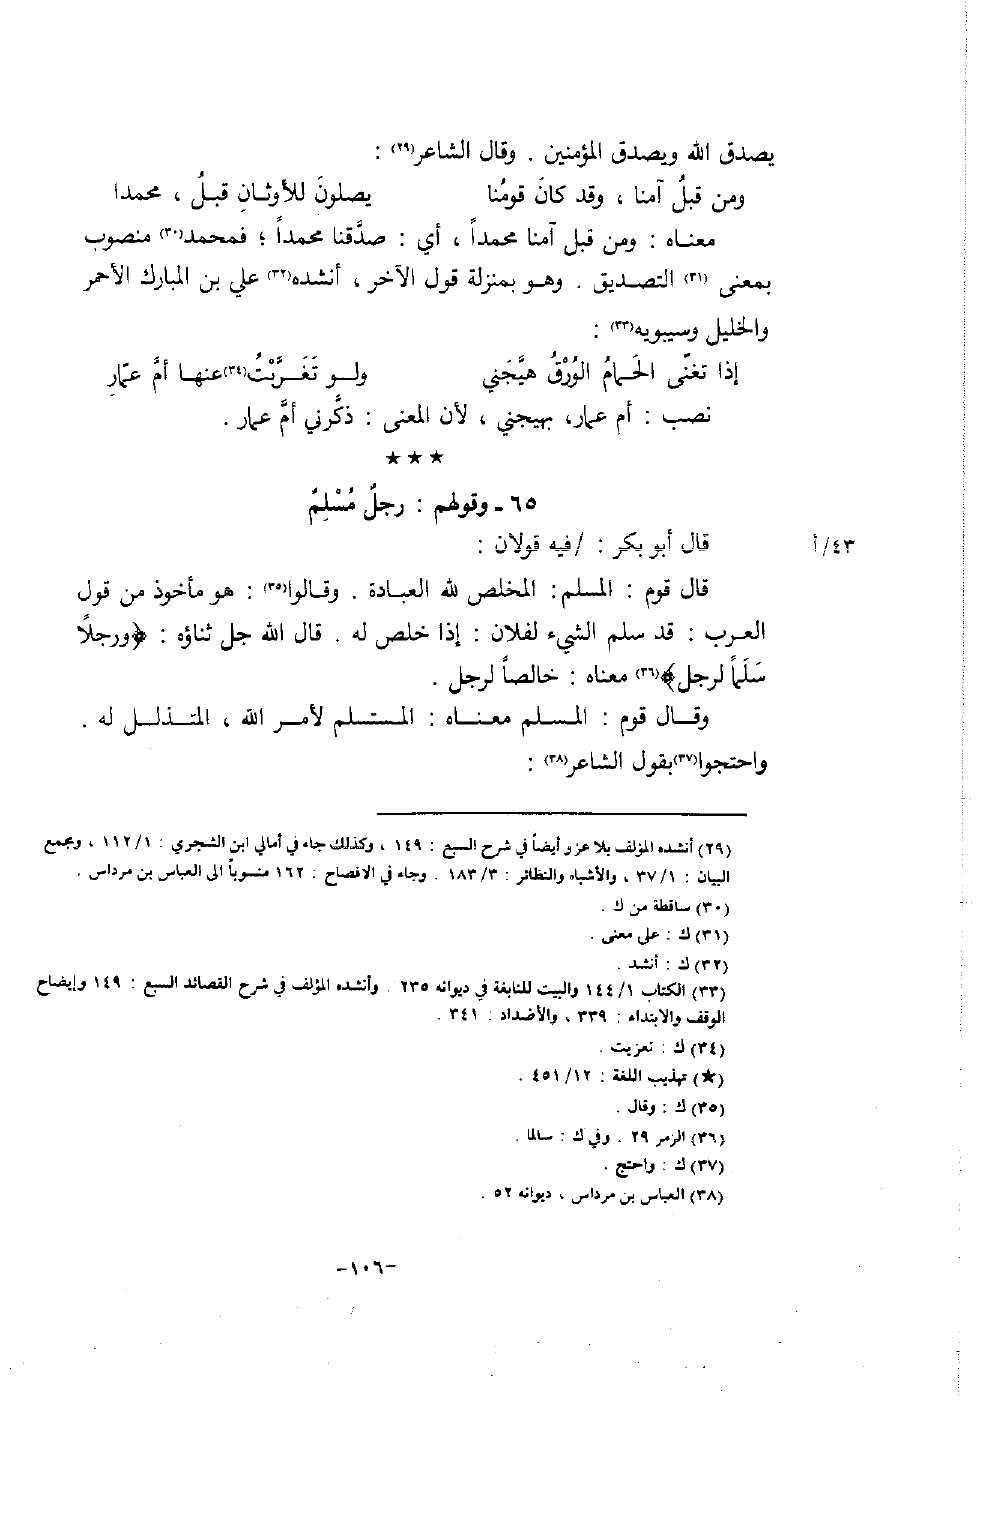 يصدق الله ويصدق المؤمنين . وقال الشاعر(٢٩) :
ومن قبلُ آمنا ، وقد كانَ قومُنا يصلونَ للأوثـانِ قبلُ ، محمدا
معنـاه : ومن قبل آمنا محمداً ، أي : صدَّقنا محمداً ؛ فمحمد(٣٠) منصوب
بمعنى (٣١) التصـديق . وهـو بمنزلة قول الآخر ، أنشده(٣٢) علي بن المبارك الأحمر
والخليل وسيبويه(٣٣) :
إذا تغنّى الحَمامُ الوُرْقُ هيَّجَني ولـو تَغَـرَّبْتُ(٣٤)عنهـا أمَّ عمّارِ
نصب : أم عمار، بهيجني ، لأن المعنى : ذكَّرني أمَّ عمار .
★ ★ ★
٦٥ ـ وقولهم : رجلٌ مُسْلِمٌ
قال أبو بكر : /فيه قولان : ٤٣/أ
قال قوم : المسلم : المخلص لله العبـادة . وقـالوا(٣٥) : هو مأخوذ من قول
العـرب : قد سلم الشيء لفلان : إذا خلص له . قال الله جل ثناؤه : ﴿ورجلاً
سَلَماً لرجل﴾(٣٦) معناه : خالصاً لرجل .
وقـال قوم : المسلم معنـاه : المستسلم لأمـر الله ، المتـذلـل له .
واحتجوا(٣٧)بقول الشاعر(٣٨) :
(٢٩) أنشده المؤلف بلا عزو أيضاً في شرح السبع : ١٤٩ ، وكذلك جاء في أمالي ابن الشجري : ١١٢/١ ، ومجمع
البيان : ٣٧/١ ، والأشباه والنظائر : ١٨٣/٣ . وجاء في الافصاح : ١٦٢ منسوباً الى العباس بن مرداس .
(٣٠) ساقطة من ك .
(٣١) ك : على معنى .
(٣٢) ك : أنشد .
(٣٣) الكتاب ١٤٤/١ والبيت للنابغة في ديوانه ٢٣٥ . وأنشده المؤلف في شرح القصائد السبع : ١٤٩ وإيضاح
الوقف والابتداء : ٣٣٩ ، والأضداد : ٣٤١ .
(٣٤) ك : تعزيت .
(★) تهذيب اللغة : ٤٥١/١٢ .
(٣٥) ك : وقال .
(٣٦) الزمر ٢٩ . وفي ك : سالما .
(٣٧) ك : واحتج .
(٣٨) العباس بن مرداس ، ديوانه ٥٢ .
-١٠٦-